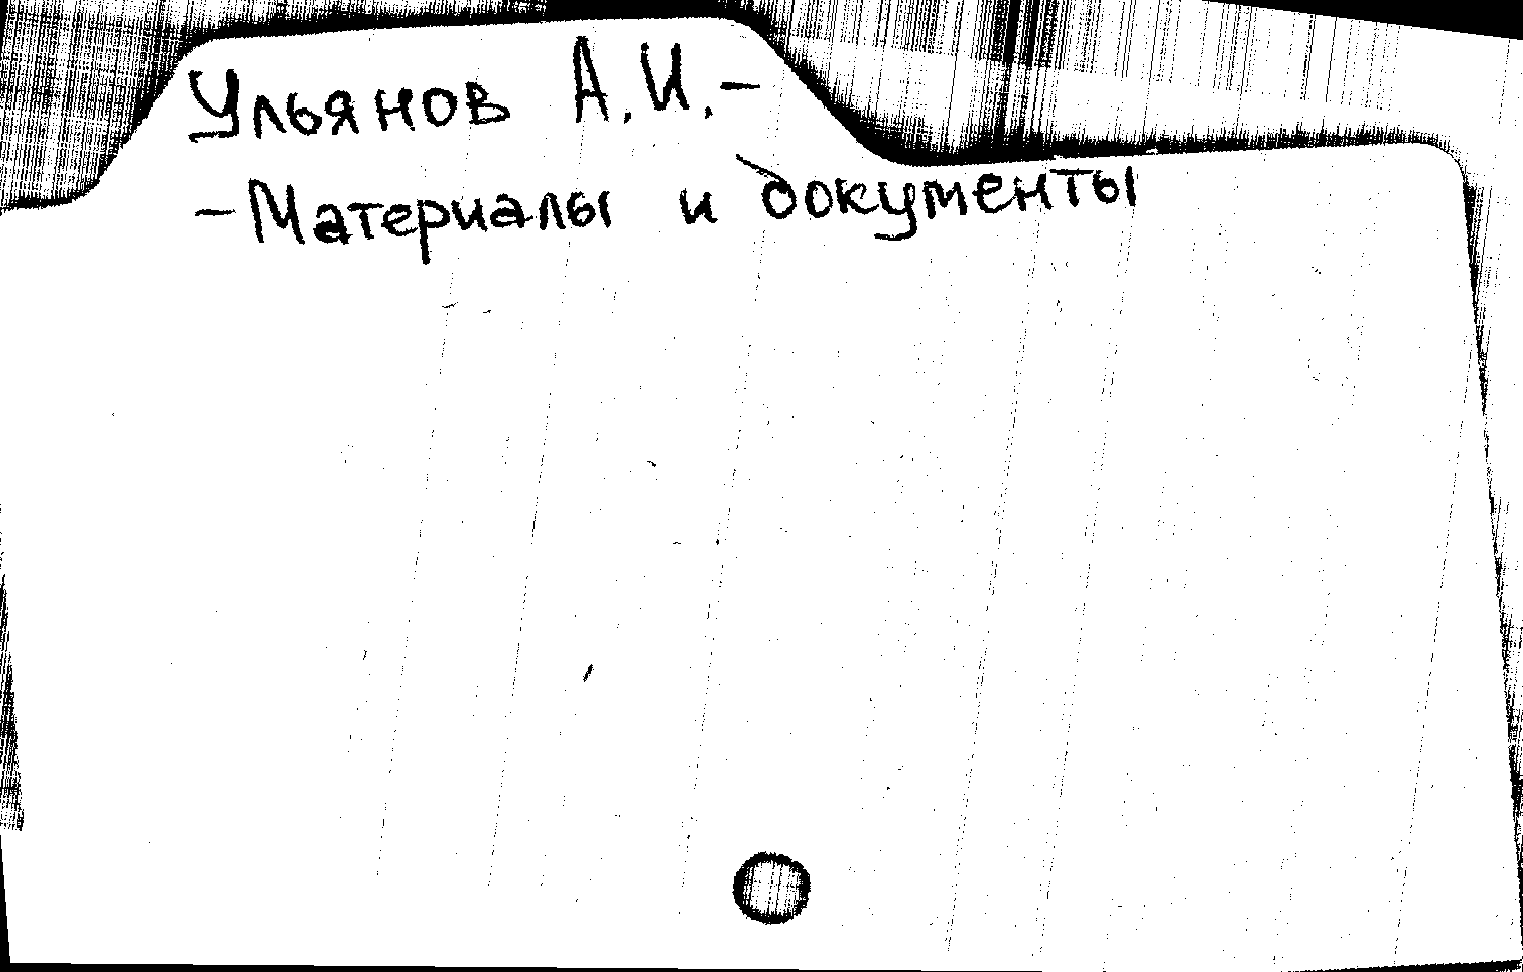 Ульянов А.И.-
-Материалы и документы